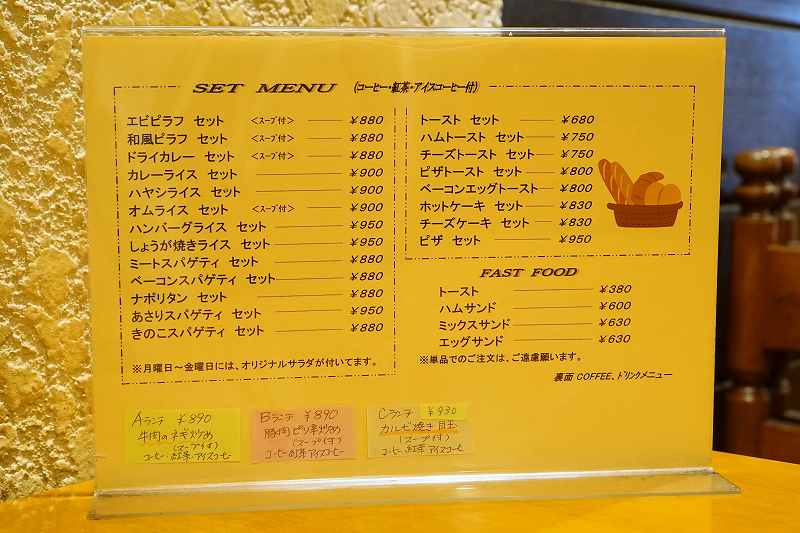 SET MENU (コーヒー・紅茶・アイスコーヒー付)
エビピラフ セット <スープ付> ¥880
和風ピラフ セット <スープ付> ¥880
ドライカレー セット <スープ付> ¥880
カレーライス セット ¥900
ハヤシライス セット ¥900
オムライス セット <スープ付> ¥900
ハンバーグライス セット ¥950
しょうが焼きライス セット ¥950
ミートスパゲティ セット ¥880
ベーコンスパゲティ セット ¥880
ナポリタン セット ¥880
あさりスパゲティ セット ¥950
きのこスパゲティ セット ¥880
※月曜日~金曜日には、オリジナルサラダが付いてます。
トースト セット ¥680
ハムトースト セット ¥750
チーズトースト セット ¥750
ピザトースト セット ¥800
ベーコンエッグトースト ¥800
ホットケーキ セット ¥830
チーズケーキ セット ¥830
ピザ セット ¥950
FAST FOOD
トースト ¥380
ハムサンド ¥600
ミックスサンド ¥630
エッグサンド ¥630
※単品でのご注文は、ご遠慮願います。
裏面 COFFEE、ドリンクメニュー
Aランチ ¥890
牛肉のネギ炒め
(スープ付)
コーヒー 紅茶 アイスコーヒー
Bランチ ¥890
豚肉ピリ辛炒め
(スープ付)
コーヒー 紅茶 アイスコーヒー
Cランチ ¥930
カルビ焼き 目玉
(スープ付)
コーヒー 紅茶 アイスコーヒー